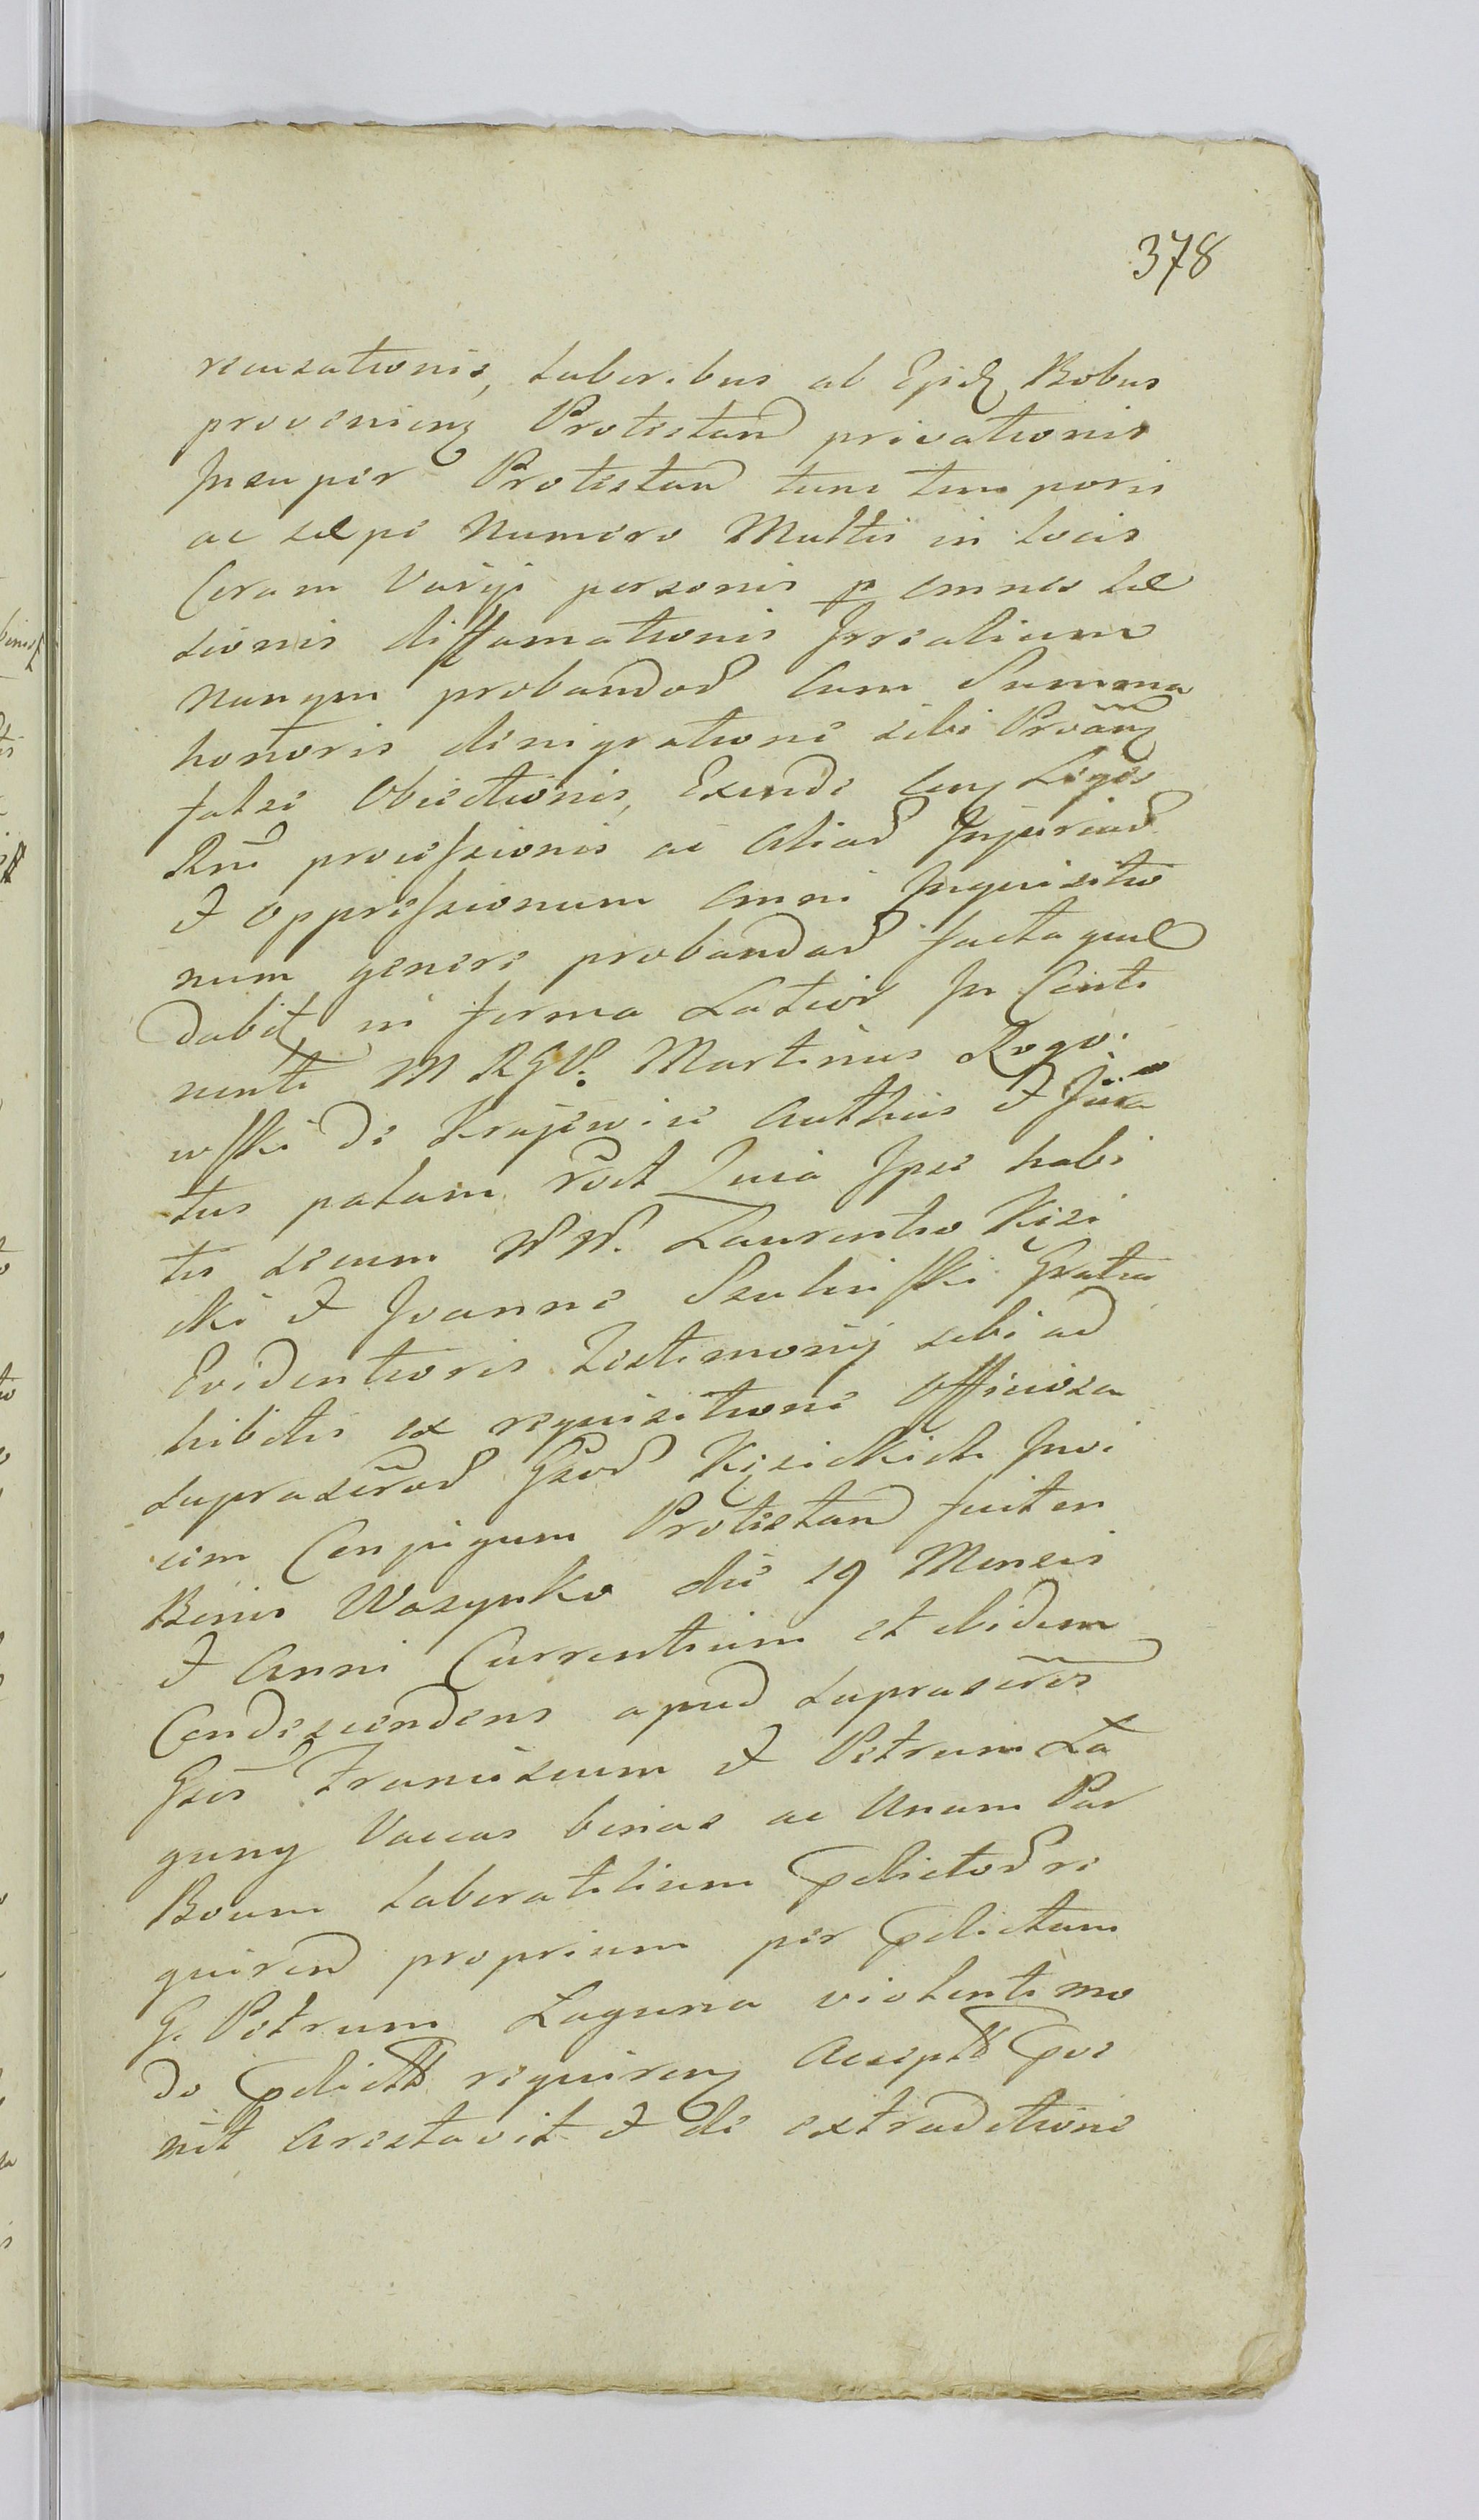 378
recusationis, laboribus ab Eisd Bobus
provenien Protestan privationis
Insuper Protestan tunc temporis
ac sæpe Numero Multis in locis
Coram Varijs personis p omnes læ
sionis diffamationis Irrealium
nunqm probandor Cum Summa
honoris denigratione sibi Proãn
falsæ Obiectionis, Exinde Legis
Rni processionis ac Aliar Injuriar
& oppressionum omni Inquisitio
num genere probandar facta quæ
dabit in forma Latiori In Conti
nenti M RGD. Martinus Rogo
wski de Krajewice Authus & Jura
tus palam rõct Quia Ipse habi
tis secum NN. Laurentio Kizi
cki & Joanne Szulinski Gratia
Evidentioris Testimonij sibi ad
hibitis ex requisitione Officiosa
suprascror Gsor Kizickich Invi
cem Conjugum Protestan fuit in
Bonis Woszynko die 19 Mensis
& Anni Currentium et ibidem
Condescendens apud suprascros
Gsos Franciscum & Petrum La
guny Vaccas binas ac Unum Par
Boum laboratilium pdictor re
quiren proprium per pdictum
G. Petrum Laguna violento mo
do pdictis requiren Accept pve
nit Arestavit & de extraditione